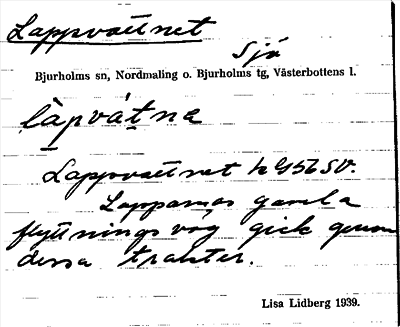 Lappvattnet
Sjö
Bjurholms sn, Nordmaling o. Bjurholms tg, Västerbottens l.
làpvátna
Lappvattnet h G156 SV.
Lapparnas gamla
flyttningsväg gick genom
dessa trakter.
Lisa Lidberg 1939.